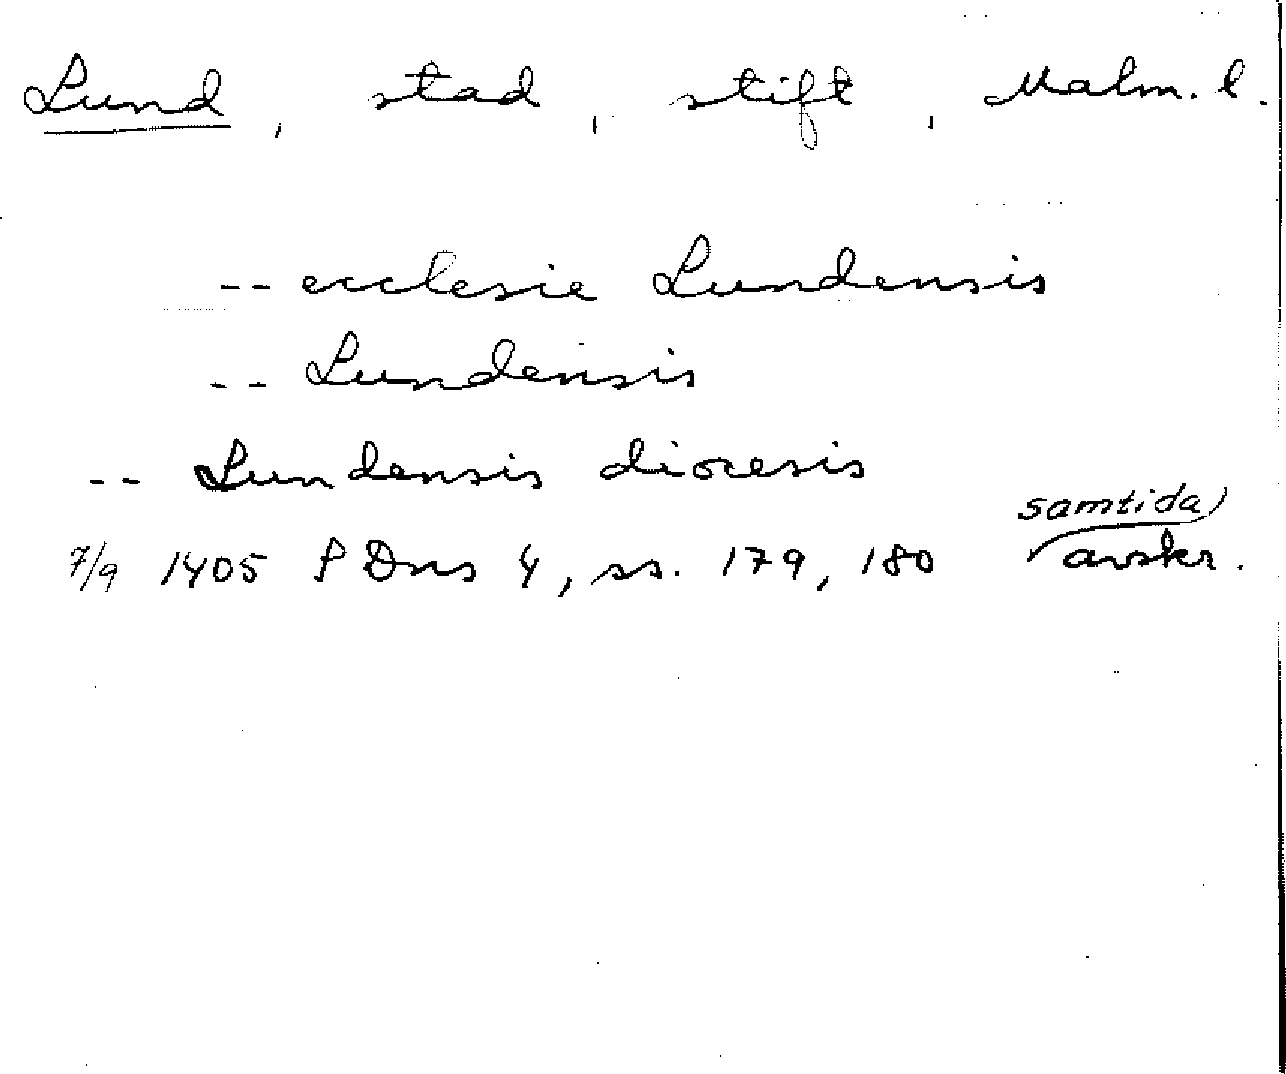 Lund, stad, stift, Malm. l.
-- ecclesie Lundensis
-- Lundensis
-- Lundensis diocesis
samtida
7/9 1405 P Dns 4, ss. 179, 180 avskr.